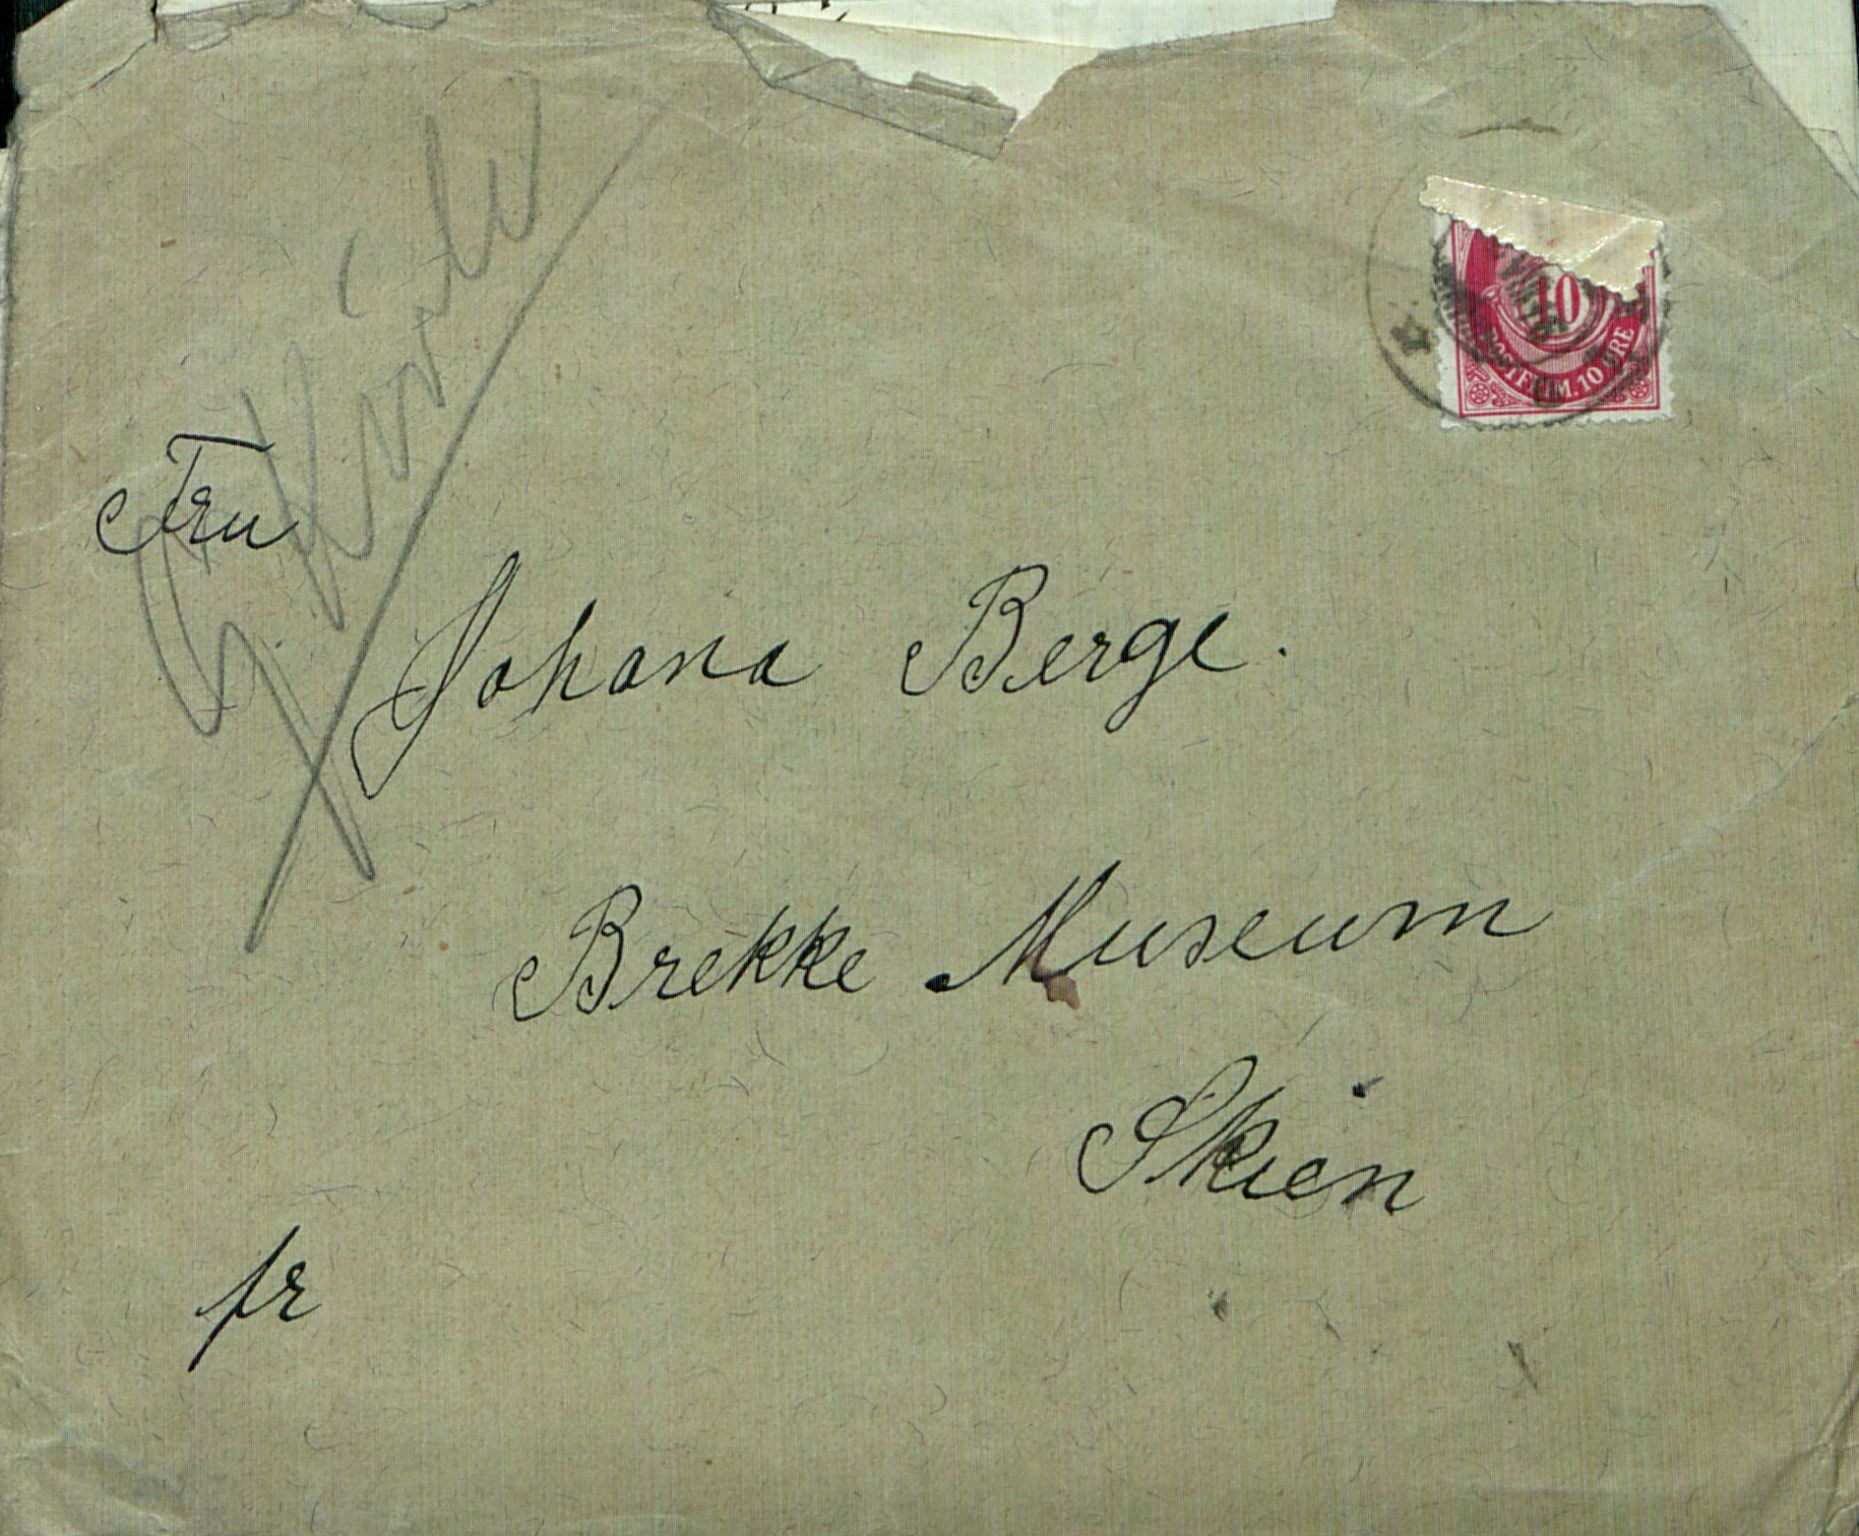 10
POSTFRIM. 10 ØRE
Fru
Johana Berge.
Brekke Museum
Skien
fr